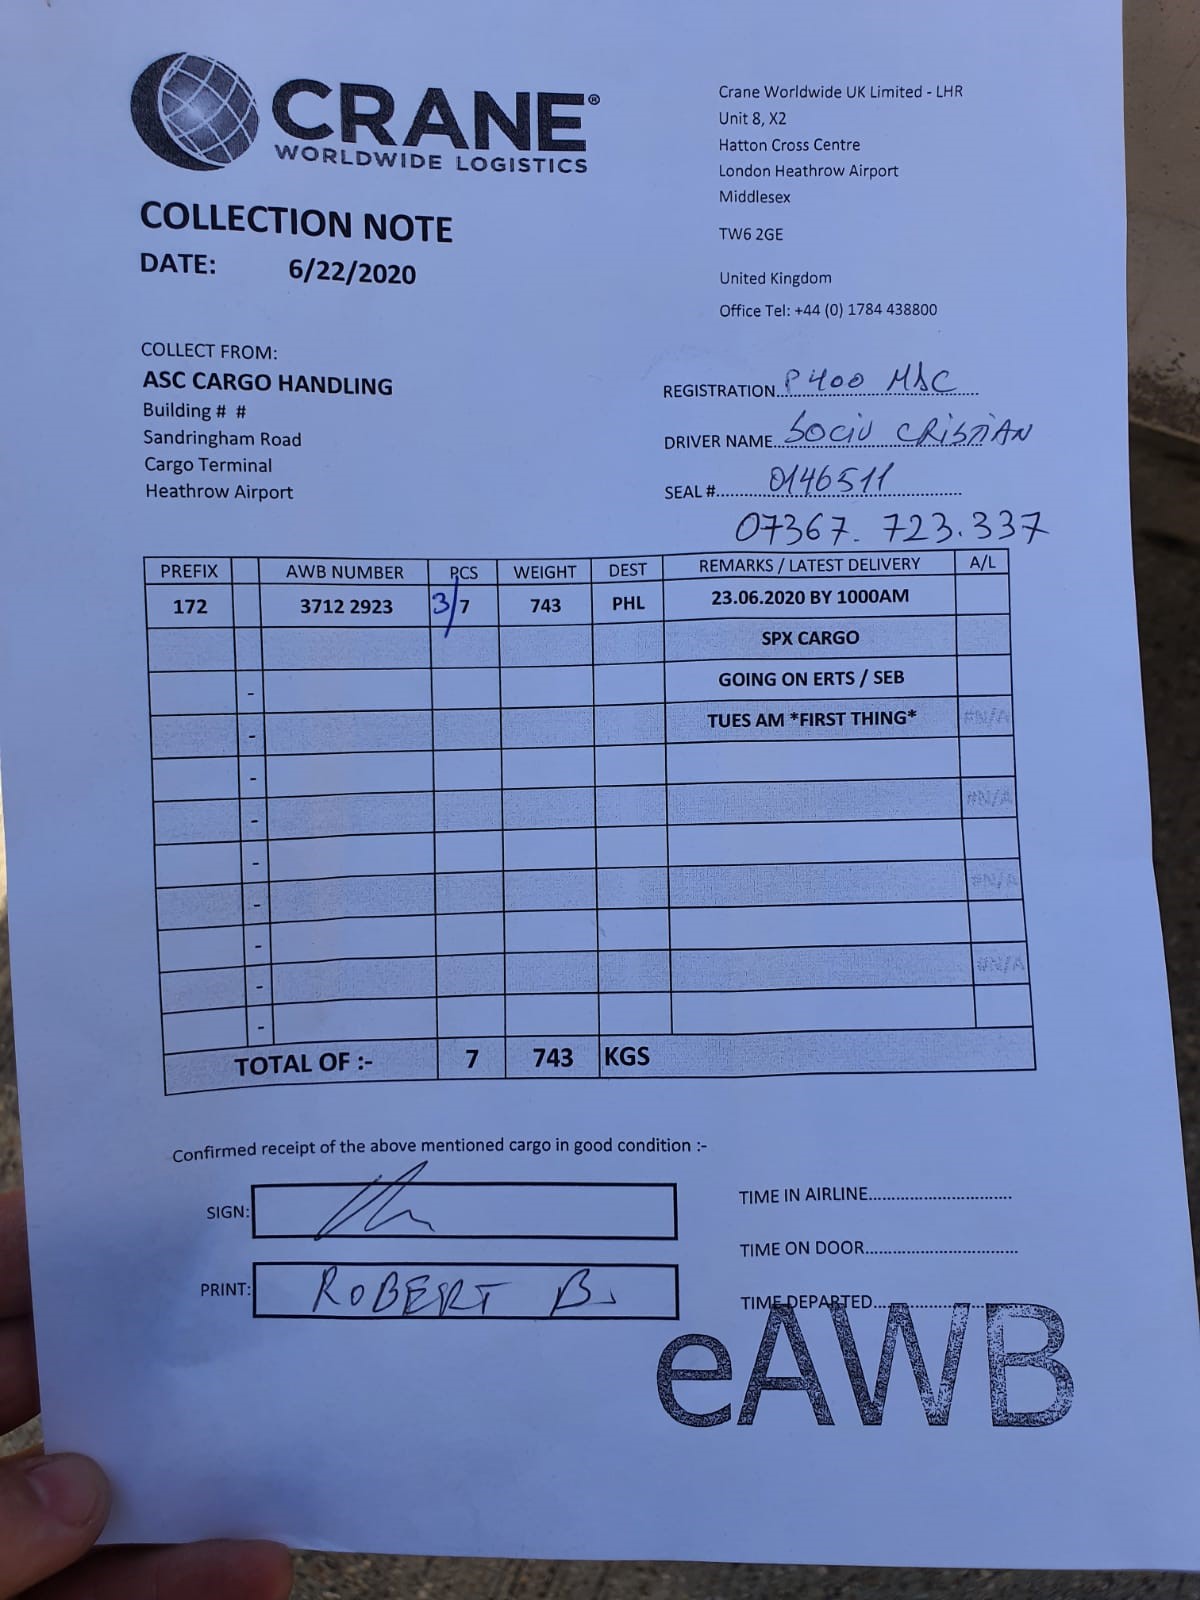 CRANE®
WORLDWIDE LOGISTICS
COLLECTION NOTE
DATE: 6/22/2020
Crane Worldwide UK Limited - LHR
Unit 8, X2
Hatton Cross Centre
London Heathrow Airport
Middlesex
TW6 2GE
United Kingdom
Office Tel: +44 (0) 1784 438800
COLLECT FROM:
ASC CARGO HANDLING
Building # #
Sandringham Road
Cargo Terminal
Heathrow Airport
REGISTRATION P400 MSC
DRIVER NAME SOCIU CRISTIAN
SEAL # 0146511
07367. 723.337
PREFIX AWB NUMBER PCS WEIGHT DEST REMARKS / LATEST DELIVERY A/L
172 3712 2923 3/7 743 PHL 23.06.2020 BY 1000AM
SPX CARGO
- GOING ON ERTS / SEB
- TUES AM *FIRST THING* #N/A
-
- #N/A
-
- #N/A
-
- #N/A
-
TOTAL OF :- 7 743 KGS
Confirmed receipt of the above mentioned cargo in good condition :-
SIGN:
PRINT: ROBERT B.
TIME IN AIRLINE
TIME ON DOOR
TIME DEPARTED
eAWB